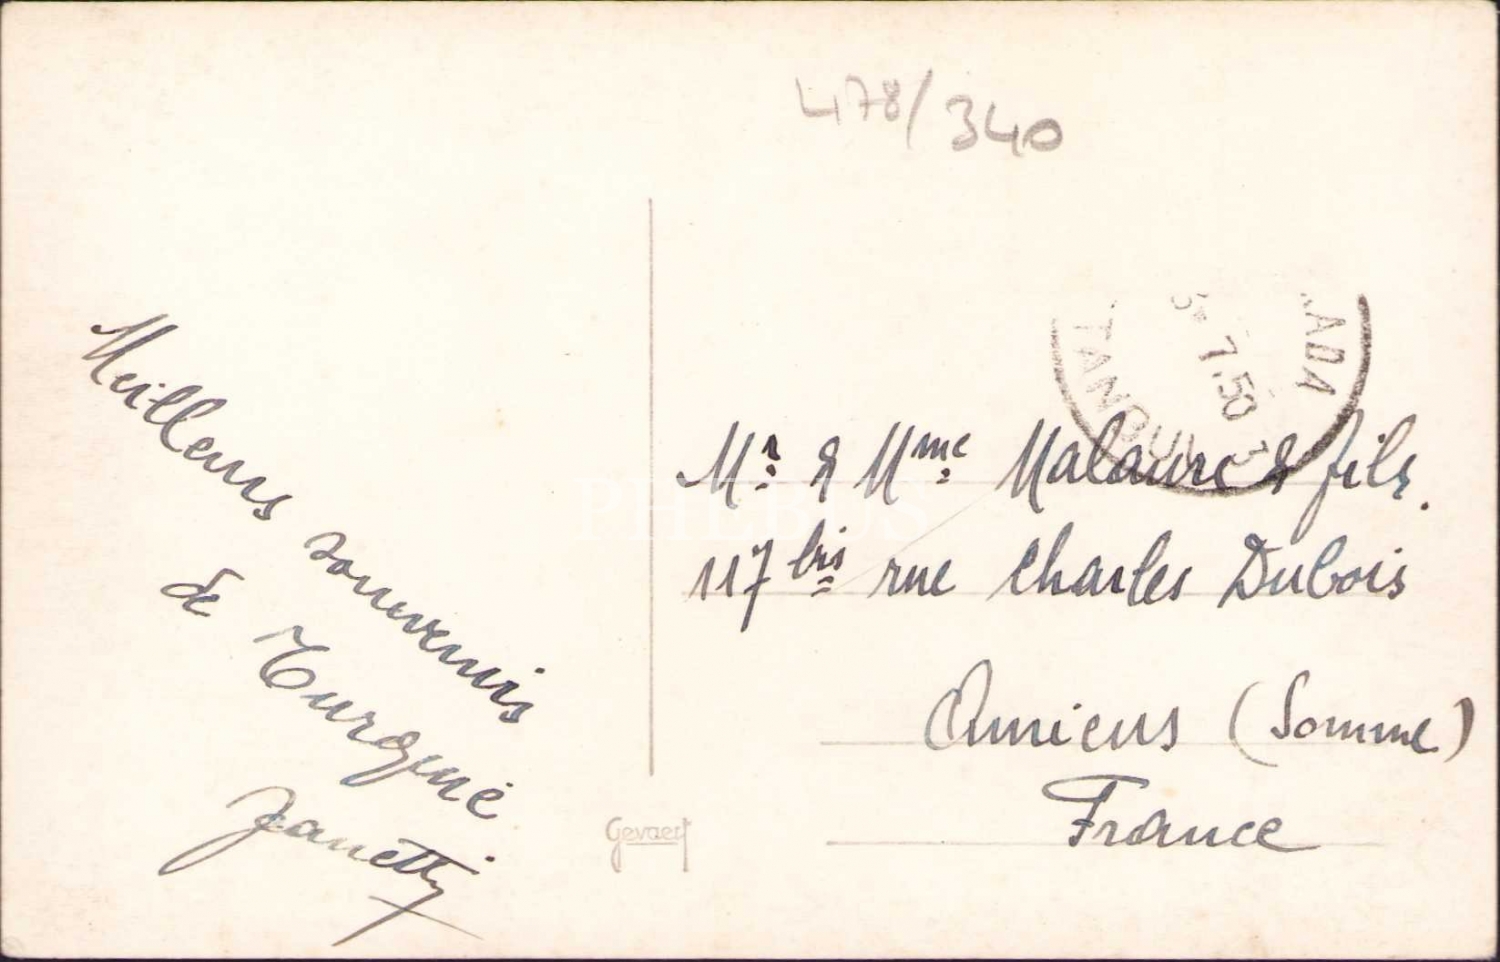 478/340
ADA
7.50
TANBUL
Meilleurs souvenirs
de Turquie
Zanetti
Mr. & Mme. Malaure & fils.
117 bis rue Charles Dubois
Amiens (Somme)
France
Gevaert
PHEBUS